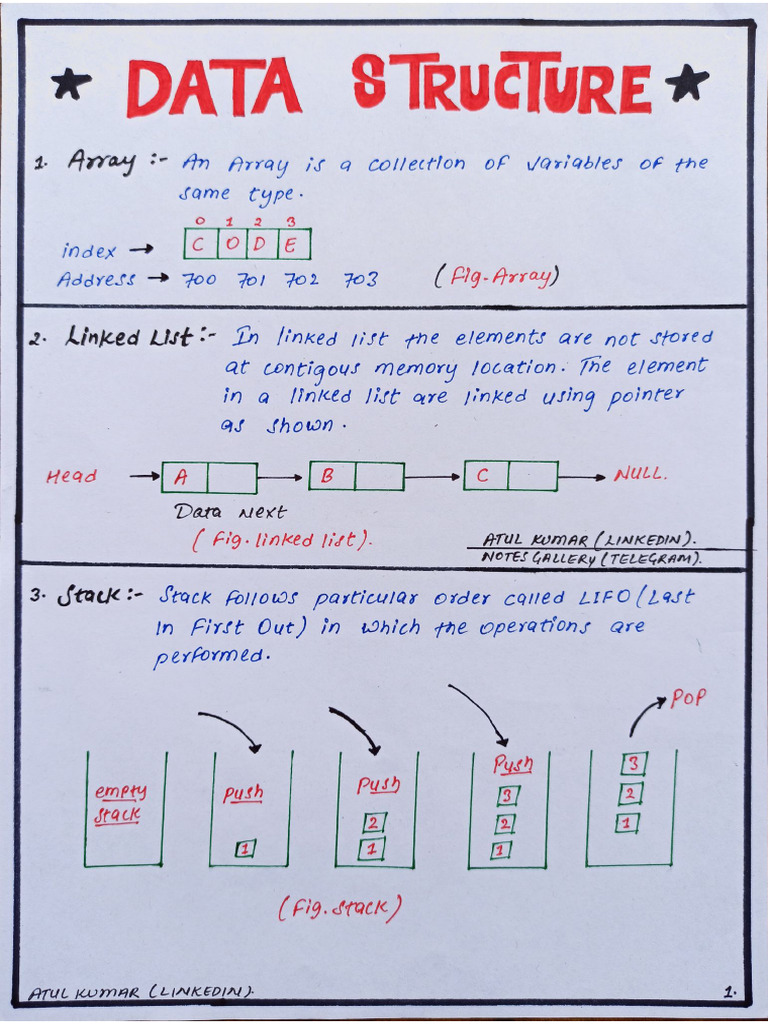 ★ DATA STRUCTURE ★
1. Array :- An Array is a collection of variables of the
same type.
0 1 2 3
index → C O D E
Address → 700 701 702 703 (Fig-Array)
2. Linked List :- In linked list the elements are not stored
at contigous memory location. The element
in a linked list are linked using pointer
as shown.
Head → A → B → C → NULL.
Data Next
(Fig. linked list).
ATUL KUMAR (LINKEDIN).
NOTES GALLERY (TELEGRAM).
3. Stack :- Stack follows particular order called LIFO (Last
In First Out) in which the operations are
performed.
POP
empty
stack
push
1
Push
2
1
Push
3
2
1
3
2
1
(Fig. Stack)
ATUL KUMAR (LINKEDIN).
1.